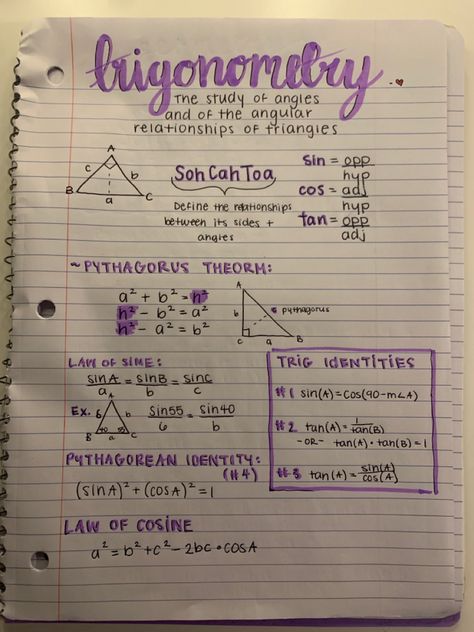 trigonometry
The study of angles
and of the angular
relationships of triangles
A
c b
B C
a
SohCahToa
Define the relationships
between its sides +
angles
sin = opp
hyp
cos = adj
hyp
tan = opp
adj
~PYTHAGORUS THEORM:
a² + b² = h²
h² - b² = a²
h² - a² = b²
A
b
pythagorus
C a B
LAW OF SINE:
sinA = sinB = sinC
a b c
Ex. A
6 b
40 55
B a C
sin55 = sin40
6 b
PYTHAGOREAN IDENTITY:
(#4)
(sinA)² + (cosA)² = 1
TRIG IDENTITIES
#1 sin(A) = cos(90-m∠A)
#2 tan(A) = 1
tan(B)
-OR- tan(A) • tan(B) = 1
#3 tan(A) = sin(A)
cos(A)
LAW OF COSINE
a² = b² + c² - 2bc • cosA